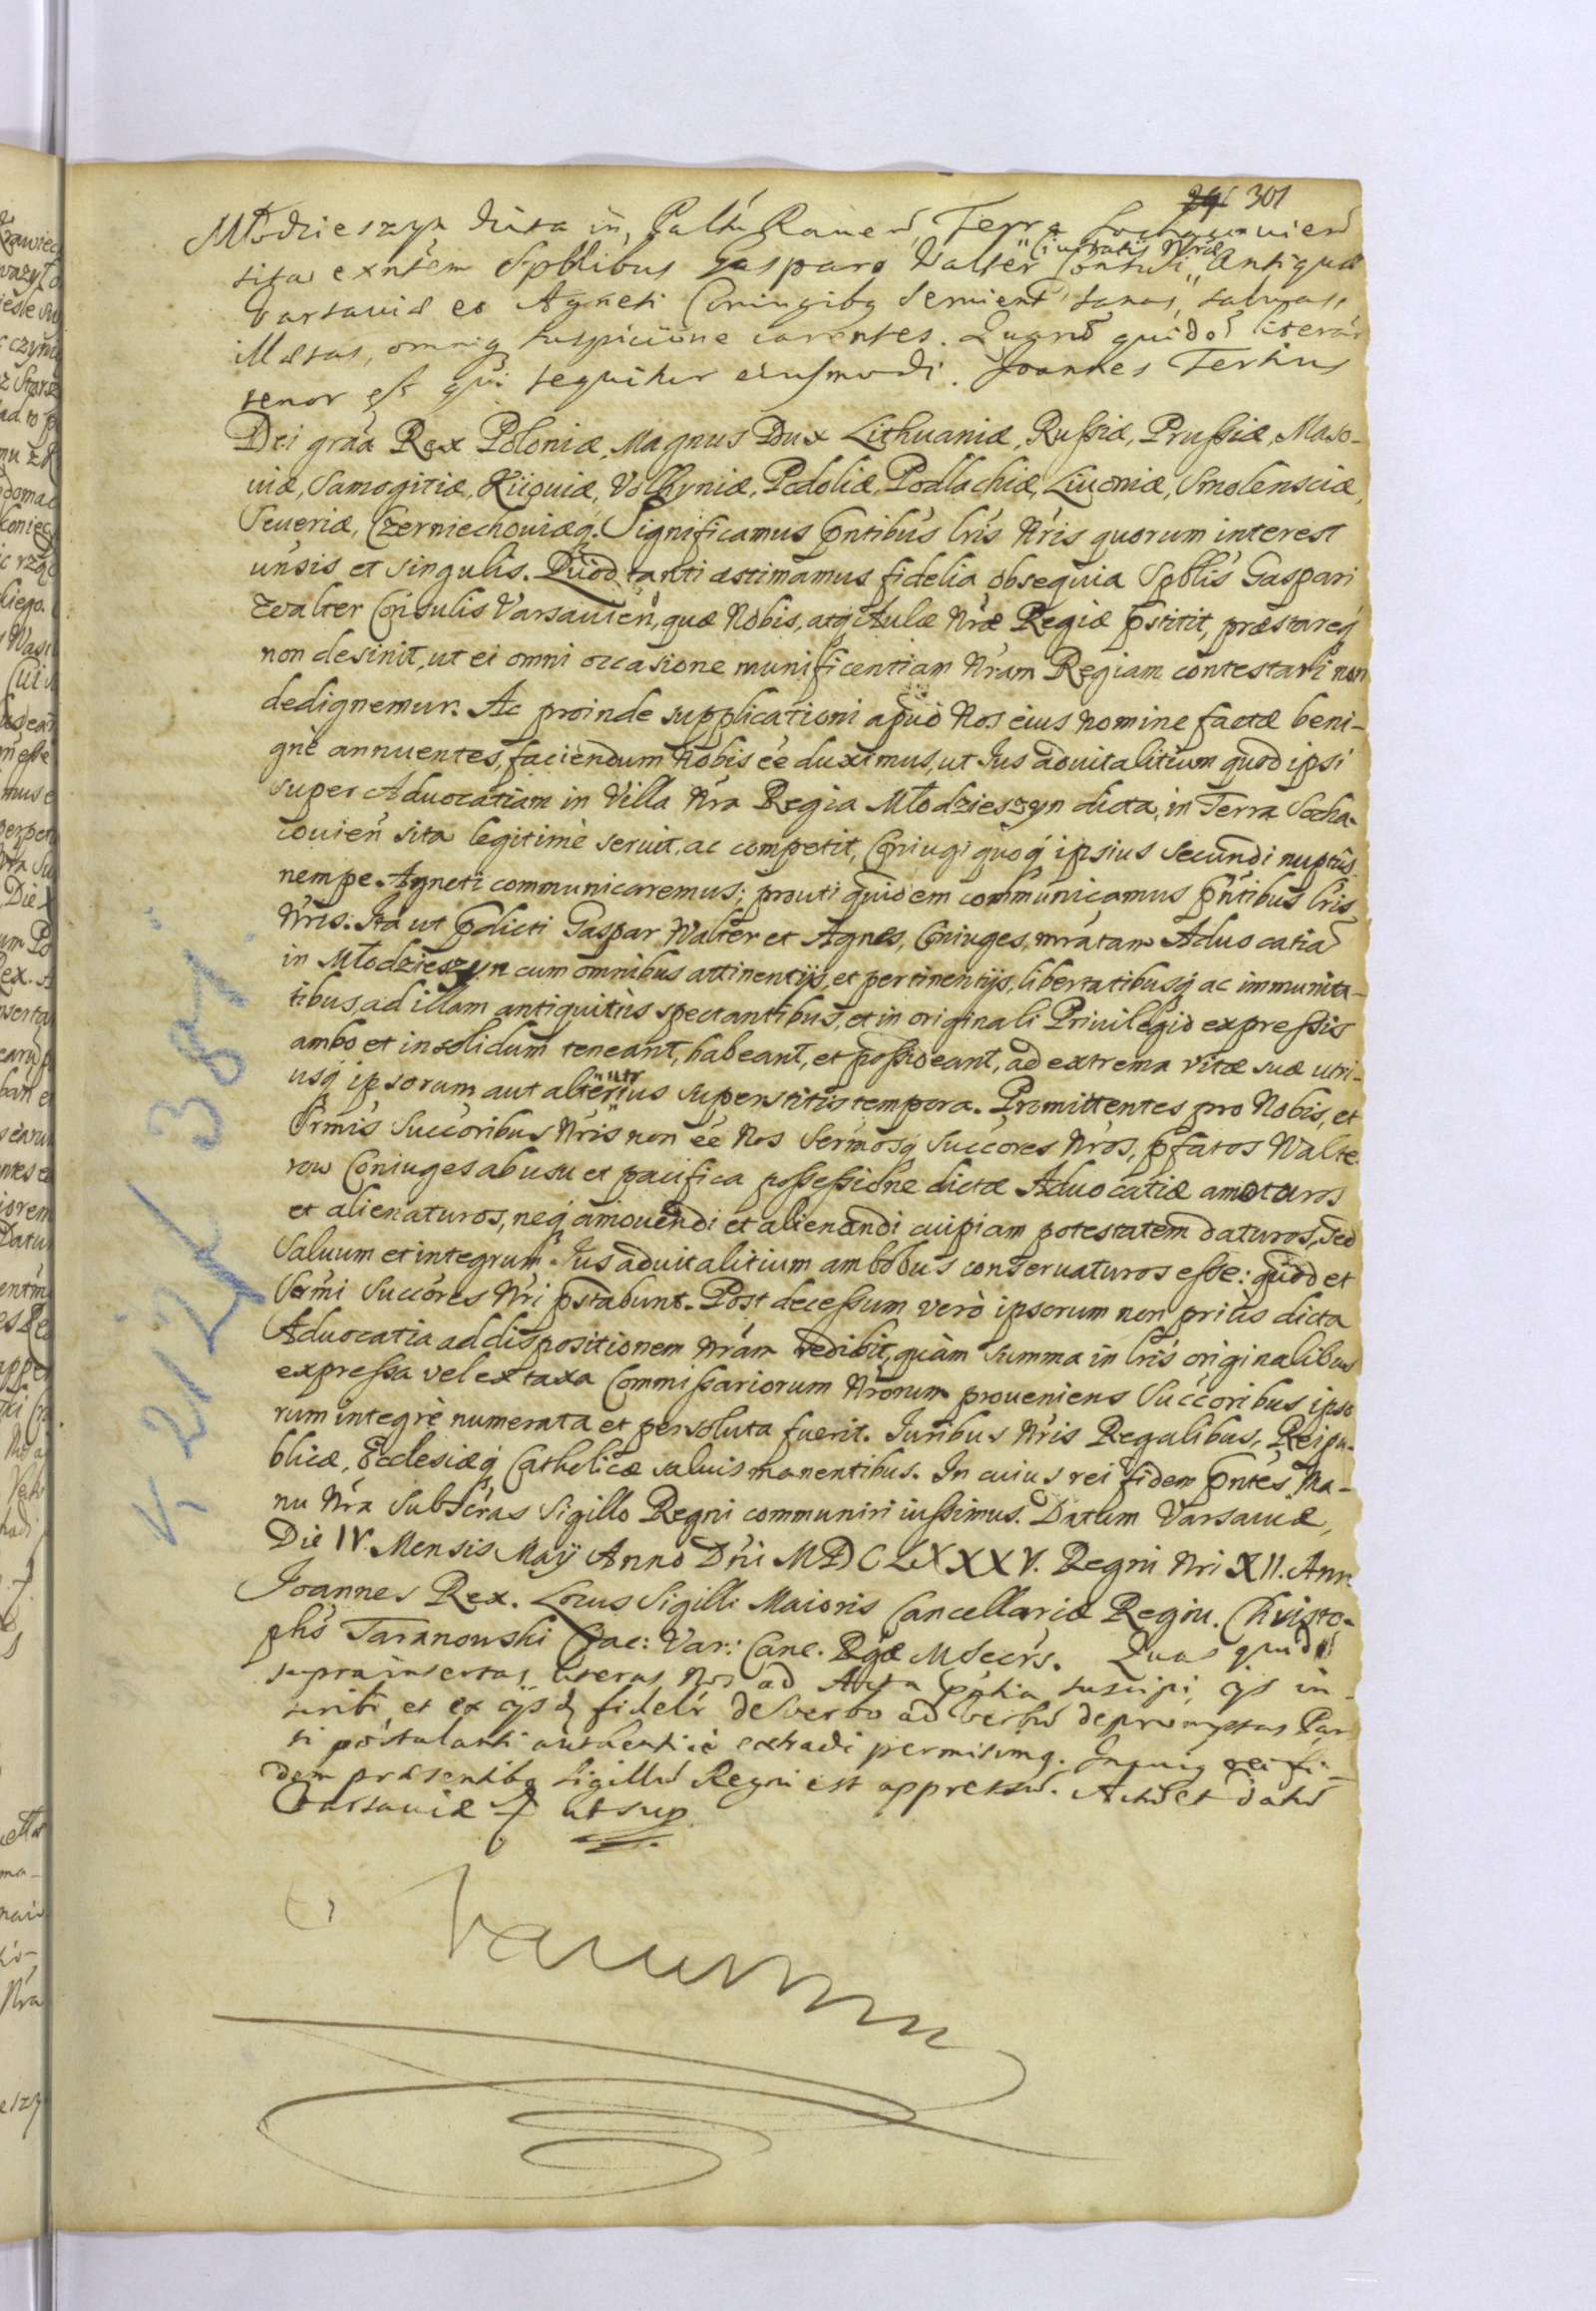 301
Młodzieszyn dicta in, Paltu Rauen, Terra Sochaczouien
sita exntem Spblibus Gasparo Walter Ciuitatis Nræ Consuli Antiquæ
Varsauiæ et Agneti Coniugibq seruient sanas, saluas,
illæsas, omniq suspicione carentes. Quarũ quidẽ literar
tenor est qui sequitur eiusmodi. Joannes Tertius
Dei grãa Rex Poloniæ, Magnus Dux Lithuaniæ, Russiæ, Prussiæ, Maso-
uiæ, Samogitiæ, Kiiouiæ, Volhyniæ, Podoliæ, Podlachiæ, Liuoniæ, Smolensciæ,
Seueriæ, Czerniechouiæq. Significamus pntibus lris Nris quorum interest
unsis et singulis. Quod tanti æstimamus fidelia obsequia Spblis Gaspari
Walter Consulis Varsauien, quæ Nobis, atq Aulæ Nræ Regiæ pstitit, præstareq
non desinit, ut ei omni occasione munificentiam Nram Regiam contestari non
dedignemur. Ac proinde supplicationi apud Nos eius nomine factæ beni-
gnè annuentes, faciendum Nobis ee duximus, ut Jus aduitalitium quod ipsi
super Aduocatiam in Villa Nra Regia Młodzieszyn dicta, in Terra Socha-
couien sita legitimè seruit, ac competit, Coniugi quoq ipsius secundi nuptiis
nempe Agneti communicaremus; prouti quidem communicamus pntibus lris
Nris. Ita ut pdicti Gaspar Walter et Agnes, Coniuges, mratam Aduocatiã
in Młodzieszyn cum omnibus attinentijs, et pertinentijs, libertatibusq ac immunita-
tibus, ad illam antiquitùs spectantibus, et in originali Priuilegio expressis
ambo et insolidum teneant, habeant, et possideant, ad extrema vitæ suæ utri-
usq ipsorum aut alterutrius superstitis tempora. Promittentes pro Nobis, et
Srmis Succoribus Nris non ee Nos Sermosq Succores Nros, pfatos Walte-
row Coniuges ab usu et pacifica possessione dictæ Aduocatiæ amoturos
et alienaturos, neq amouendi et alienandi cuipiam potestatem daturos, sed
Saluum et integrum Jus aduitalitium ambobus conseruaturos esse: quod et
Sermi Succores Nri pstabunt. Post decessum verò ipsorum non priùs dicta
Aduocatia ad dispositionem Nram redibit, quàm summa in lris originalibus
expressa vel ex taxa Commissariorum Nrorum proueniens Succoribus ipso-
rum integrè numerata et persoluta fuerit. Juribus Nris Regalibus, Reipu-
blicæ, Ecclesiæq Catholicæ saluis manentibus. In cuius rei fidem pntes Ma-
nu Nra Subscras Sigillo Regni communiri iussimus. Datum Varsauiæ,
Die IV. Mensis Maij Anno Dni MDCLXXXV. Regni Nri XII. Ann
Joannes Rex. Locus Sigilli Maioris Cancellariæ Regni. Christo-
phs Taranowski Var: Canc. Rgæ M Secrs. Quas quidẽ
suprainsertas literas Nos ad Acta pntia suscipi, ijs in-
scribi et ex ijsd fidelr de verbo ad verbũ depromptas Par-
ti postulanti authenticè extradi permisimq. In cuiq rei fi-
dem præsentibq Sigillũ Regni est appressũ. Actũ et datũ
Varsauiæ ut sup.